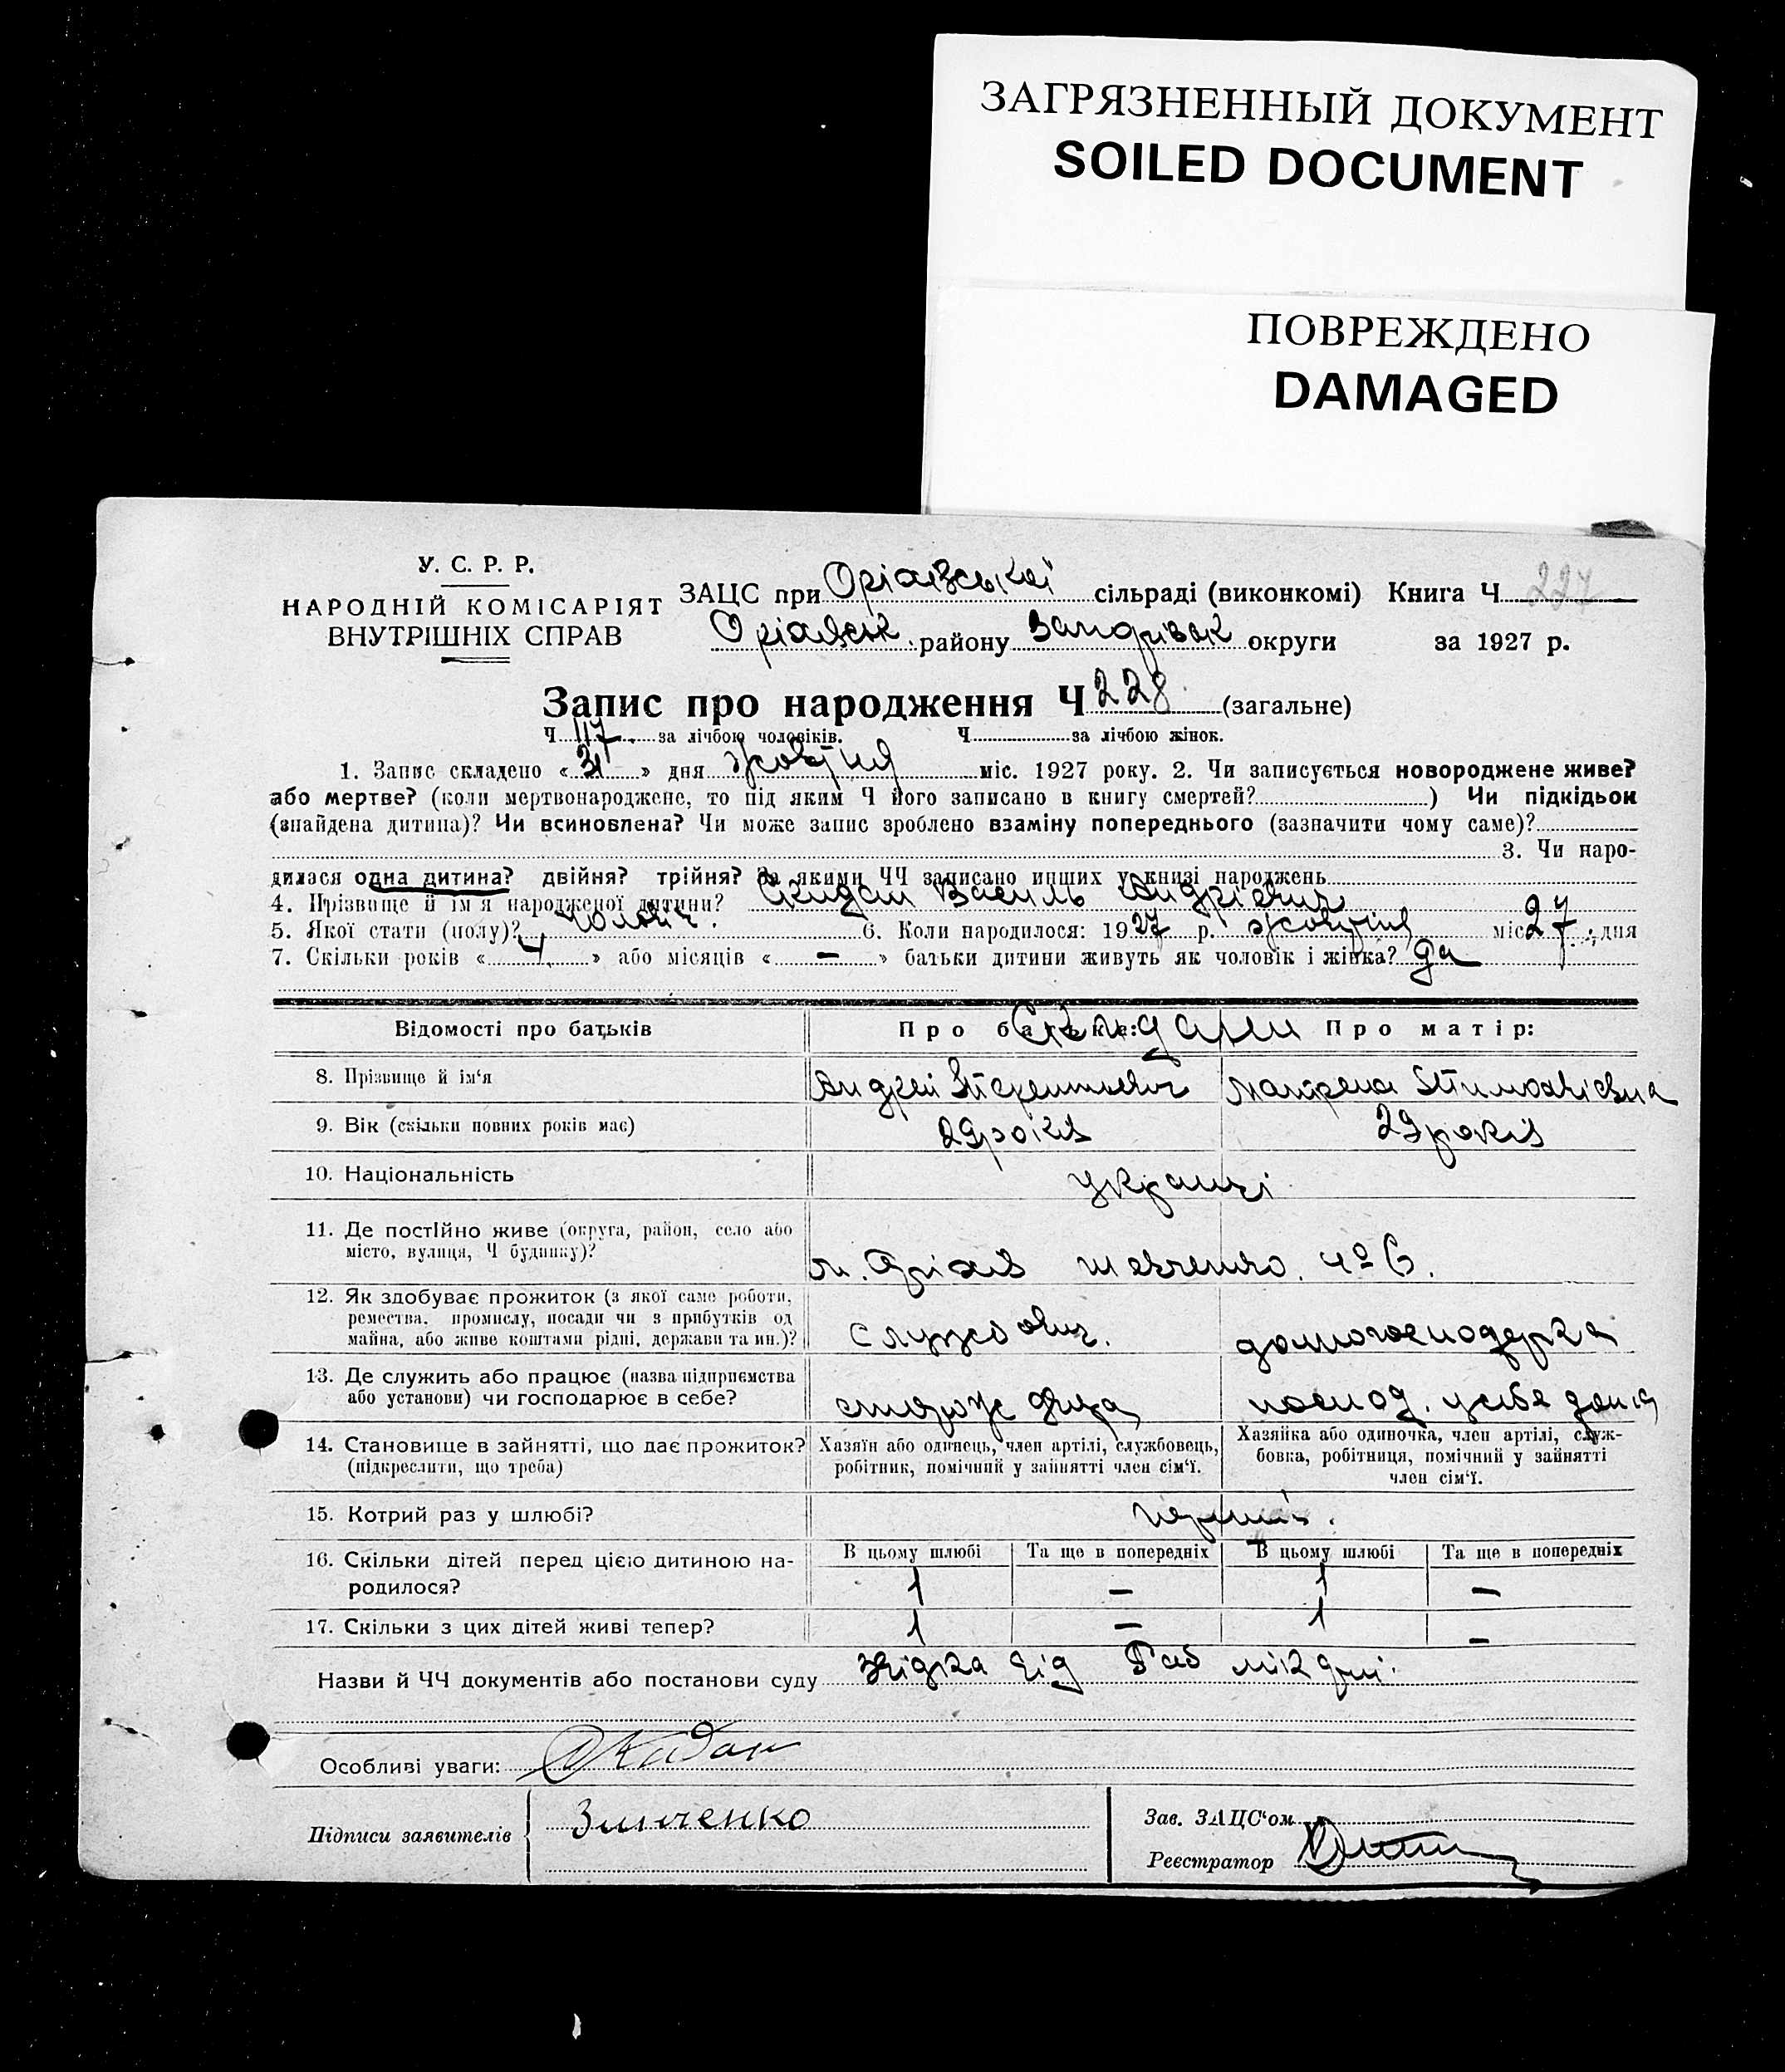 ЗАГРЯЗНЕННЫЙ ДОКУМЕНТ
SOILED DOCUMENT
ПОВРЕЖДЕНО
DAMAGED
У. С. Р. Р.
НАРОДНІЙ КОМІСАРІЯТ
ВНУТРІШНІХ СПРАВ
ЗАЦС при Оріхівської сільраді (виконкомі) Книга Ч 227
Оріхівськ. району Запоріжж округи за 1927 р.
Запис про народження Ч 228 (загальне)
Ч 117 за лічбою чоловіків. Ч за лічбою жінок.
1. Запис складено « 31 » дня жовтня міс. 1927 року. 2. Чи записується новороджене живе?
або мертве? (коли мертвонароджене, то під яким Ч його записано в книгу смертей? ) Чи підкідьок
(знайдена дитина)? Чи всиновлена? Чи може запис зроблено взаміну попереднього (зазначити чому саме)?
3. Чи наро-
дилася одна дитина? двійня? трійня? За якими ЧЧ записано инших у книзі народжень
4. Прізвище й ім'я народженої дитини? Скидан Василь Андрієвич
5. Якої стати (полу)? чоловіч. 6. Коли народилося: 1927 р. жовтня міс. 27 дня
7. Скільки років « 4 » або місяців « — » батьки дитини живуть як чоловік і жінка? да
Відомості про батьків Про батька: Скидани Про матір:
8. Прізвище й ім'я Андрей Терентьевич Мотрена Тимофіевна
9. Вік (скільки повних років має) 29 років 29 років
10. Національність україн�ці
11. Де постійно живе (округа, район, село або
місто, вулиця, Ч будинку)? м. Оріхів Шевченко. Ч° 6.
12. Як здобуває прожиток (з якої саме роботи,
ремества, промислу, посади чи з прибутків од
майна, або живе коштами рідні, держави та ин.)? службович. домогосподарка
13. Де служить або працює (назва підприємства
або установи) чи господарює в себе? господ. у себе дома
14. Становище в зайнятті, що дає прожиток?
(підкреслити, що треба)
Хазяїн або одинець, член артілі, службовець,
робітник, помічний у зайнятті член сім'ї.
Хазяйка або одиночка, член артілі, служ-
бовка, робітниця, помічний у зайнятті
член сім'ї.
15. Котрий раз у шлюбі? перший.
16. Скільки дітей перед цією дитиною на-
родилося?
В цьому шлюбі Та ще в попередніх В цьому шлюбі Та ще в попередніх
1 — 1 —
17. Скільки з цих дітей живі тепер? 1 — 1 —
Назви й ЧЧ документів або постанови суду від
Особливі уваги: Скидан
Підписи заявителів Зинченко
Зав. ЗАЦС'ом
Реєстратор